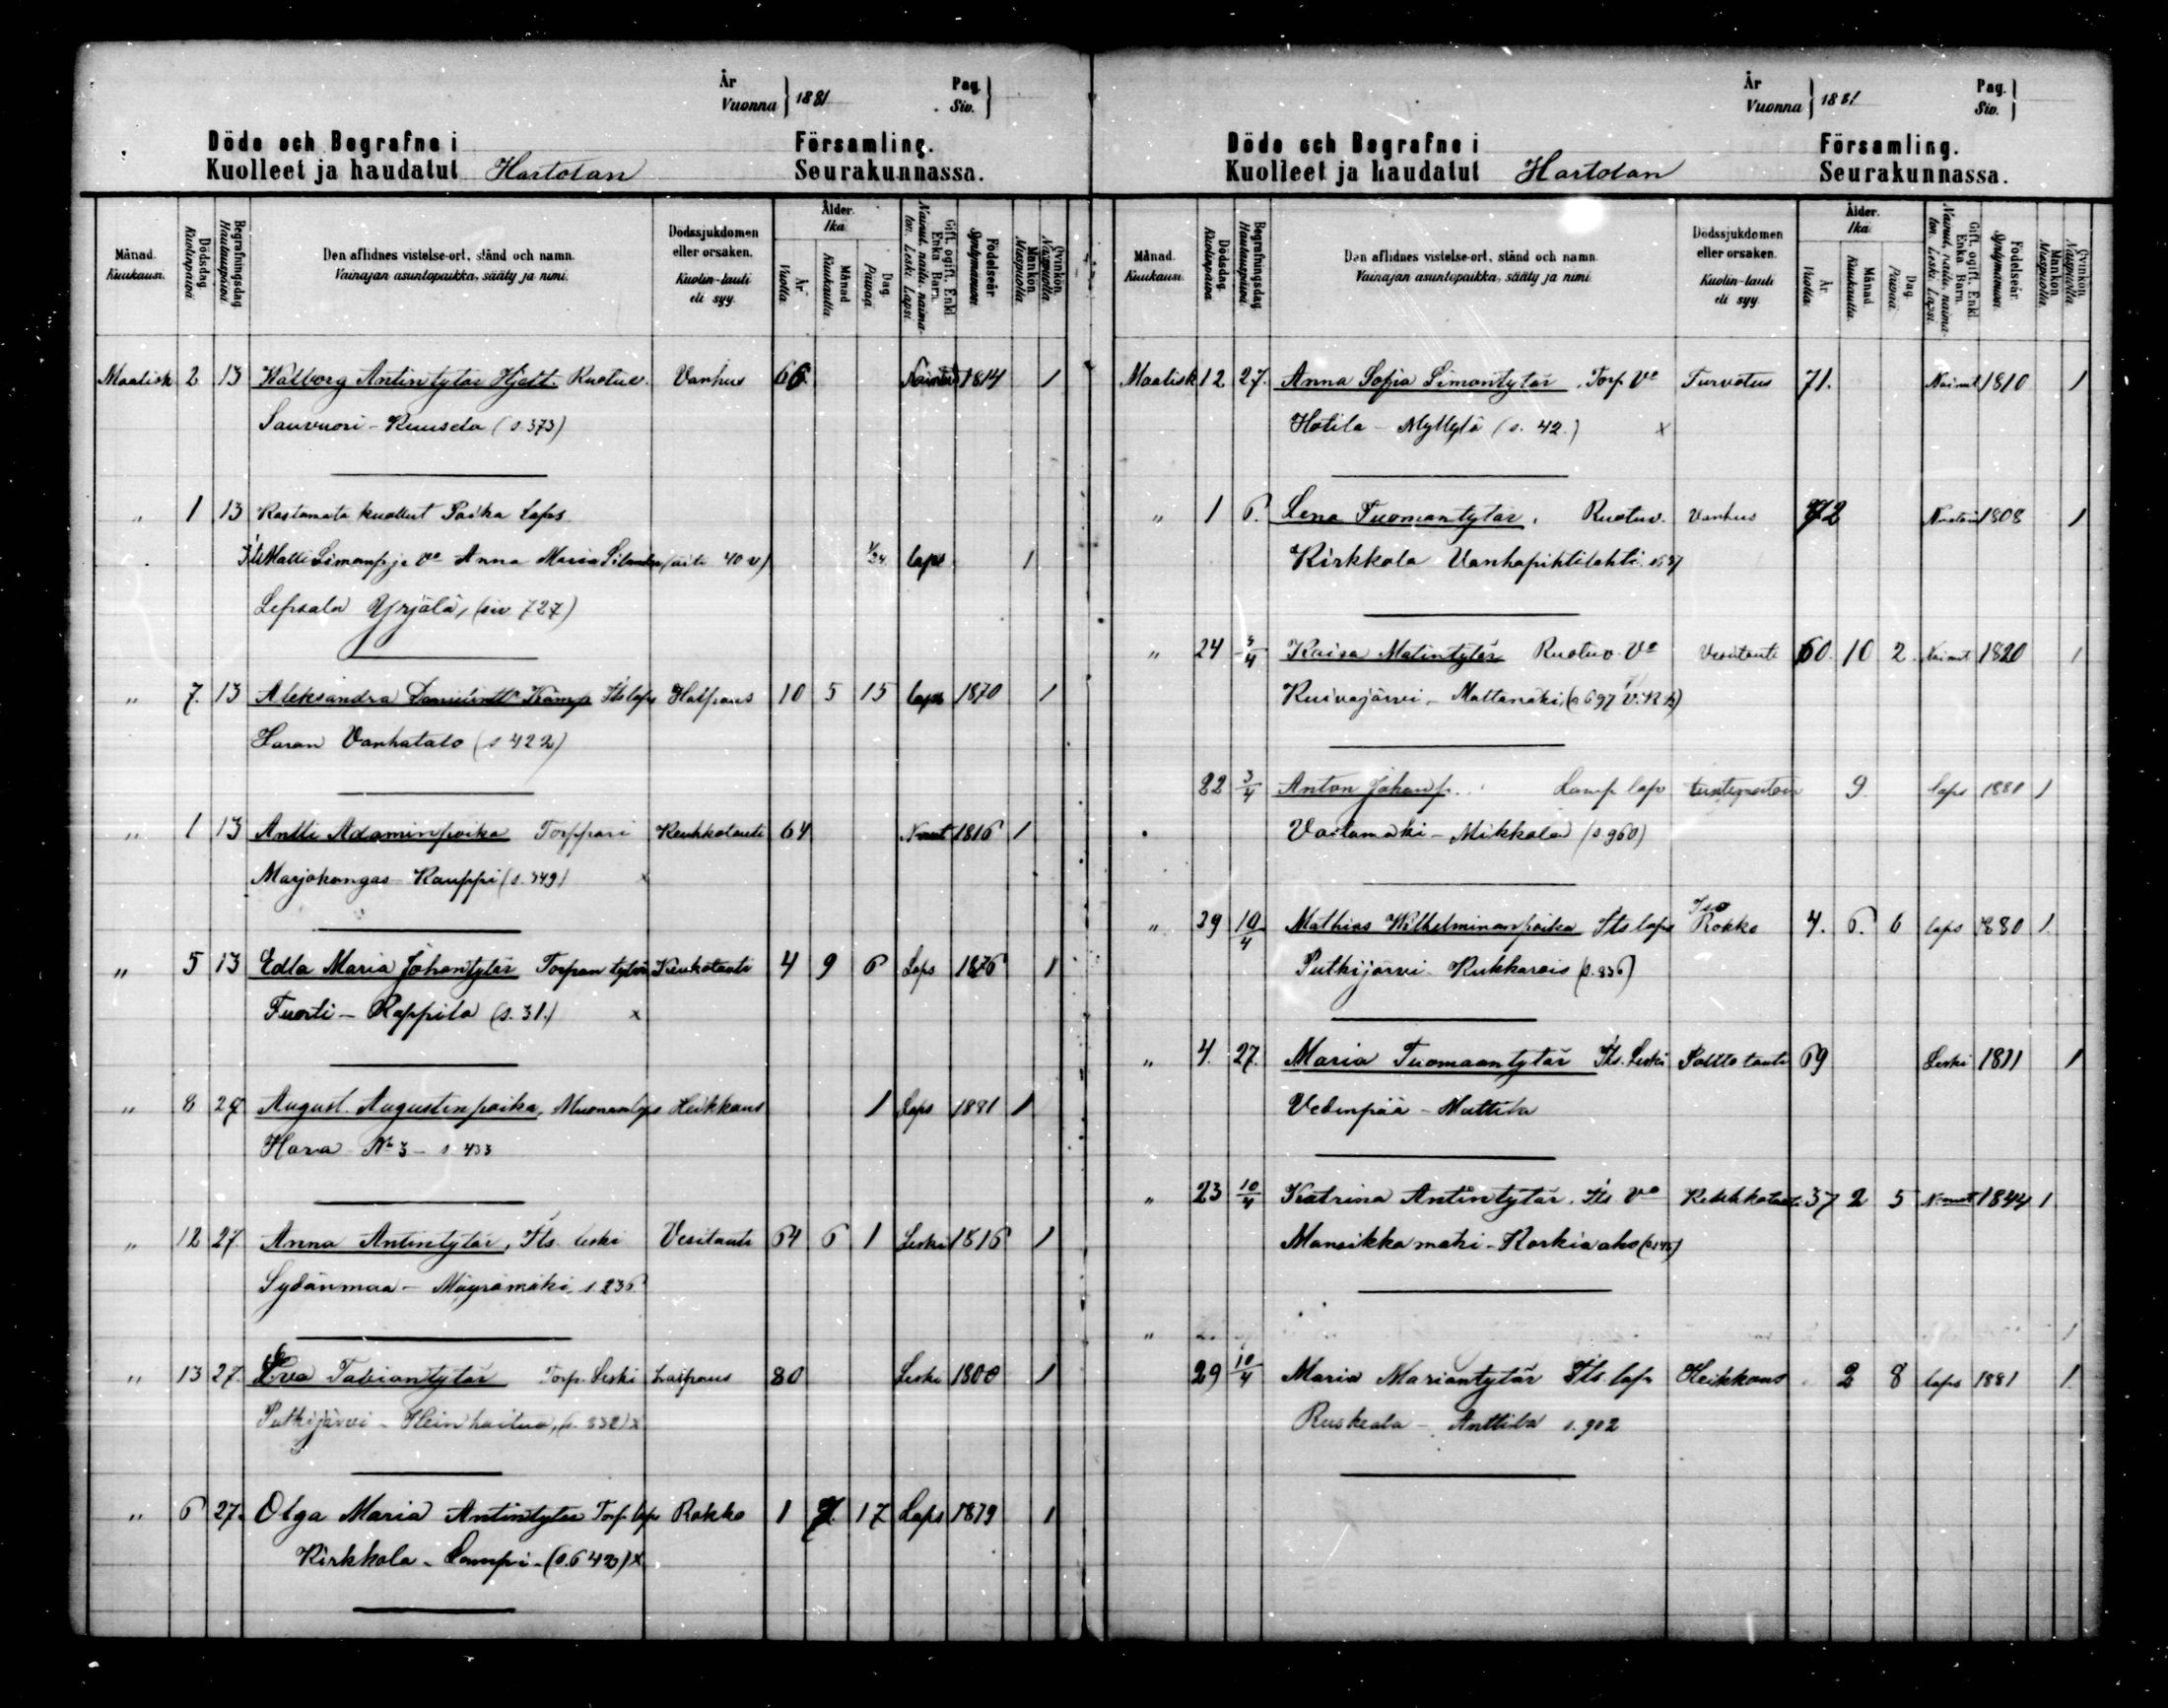 År
Vuonna } 1881
Pag.
Siv. }
Döde och Begrafne i Församling.
Kuolleet ja haudatut Hartolan Seurakunnassa.
Månad. Kuukausi.
Dödsdag. Kuolinpäivä
Begrafningsdag Hautauspäivä.
Den aflidnes vistelse-ort, stånd och namn.
Vainajan asuntopaikka, sääty ja nimi.
Dödssjukdomen eller orsaken.
Kuolin-tauti eli syy.
Ålder. Ikä.
År Vuotta.
Månad Kuukautta.
Dag. Päivää.
Gift, ogift, Enkl. Enka Barn.
Nainut, naitu, naima-ton. Leski. Lapsi.
Födelseår. Syntymävuosi.
Mankön Miespuolia.
Qvinkön. Naispuolia.
Maalisk 2 13 Walborg Antintytär Hjelt. Ruotuv. Vanhus 66 1814 1
Sauvuori - Kuusela (s. 373)
" 1 13 Kastamata kuollut Poika Laps
Itl Matti Simonp. ja Vo Anna Maria (äiti 40 v) 1/24 laps 1
Lepsala Yrjälä, (siv 727)
" 7. 13 Aleksandra Kämp Its laps Halpaus 10 5 15 laps 1870 1
Haran Vanhatalo (s 422)
" 1 13 Antti Adaminpoika Torppari Keuhkotauti 64 1816 1
Marjokangas Kauppi (s. 349) x
" 5 13 Edla Maria Johantytär Torpan tytär Keukotauti 4 9 6 Laps 1876 1
Tuorti - Rappila (s. 31.) x
" 8 27 August Augustinpoika, Muonam laps Heikkous 1 Laps 1881 1
Hara No 3 - s 433
" 12 27 Anna Antintytär, Its leski Vesitauti 64 6 1 Leski 1816 1
Sydänmaa - Mäyrämäki s. 236
" 13 27. Eva Fabiantytär Torp. Leski Halpaus 80 Leski 1800 1
Putkijärvi - Heinhaitua, (s. 832) x
" 6 27. Olga Maria Antintytär Torp. laps Rokko 1 7 17 Laps 1879 1
Kirkkola - Lampi - (s. 642) x
År
Vuonna } 1881
Pag.
Siv. }
Döde och Begrafne i Församling.
Kuolleet ja haudatut Hartolan Seurakunnassa.
Månad. Kuukausi.
Dödsdag. Kuolinpäivä.
Begrafningsdag Hautauspäivä.
Den aflidnes vistelse-ort, stånd och namn.
Vainajan asuntopaikka, sääty ja nimi
Dödssjukdomen eller orsaken.
Kuolin-tauti eli syy.
Ålder. Ikä.
År Vuotta.
Månad Kuukautta.
Dag. Päivää.
Gift, ogift, Enkl. Enka Barn.
Nainut, naitu, naima-ton. Leski. Lapsi.
Födelseår. Syntymävuosi.
Mankön Miespuolia.
Qvinkön Naispuolia.
Maalisk 12 27. Anna Sofia Simontytär Torp Vo Turvotus 71. Nainut 1810 1
Hotila - Myllylä (s. 42.) x
" 1 6. Lena Tuomantytär, Ruotuv. Vanhus 72 1808 1
Kirkkola Vanhapihtilahti
" 24 3/4 Kaisa Matintytär Ruotuv. Vo Vesitauti 60 10 2. Nainut 1820 1
Kuivajärvi - Mattamäki, (s 697 V. K. B)
22 3/4 Anton Johanp. Lamp laps tuntematoin 9 laps 1881 1
Vastamäki - Mikkola (s. 960)
" 29 10/4 Mathias Wilhelminanpoika Its laps Iso Rokko 4. 6. 6 laps 1880 1.
Putkijärvi Kukkarois (s. 836)
" 4. 27. Maria Tuomaantytär Its. Leski Poltto tauti 69 Leski 1811 1
Vedenpää - Mattila
" 23 10/4 Katrina Antintytär. Its Vo Keuhkotauti 37 2 5 1844 1
Mansikkamäki - Korkiaaho
29 10/4 Maria Mariantytär Its laps Heikkous 2 8 laps 1881 1.
Ruskeala - Anttila s. 902